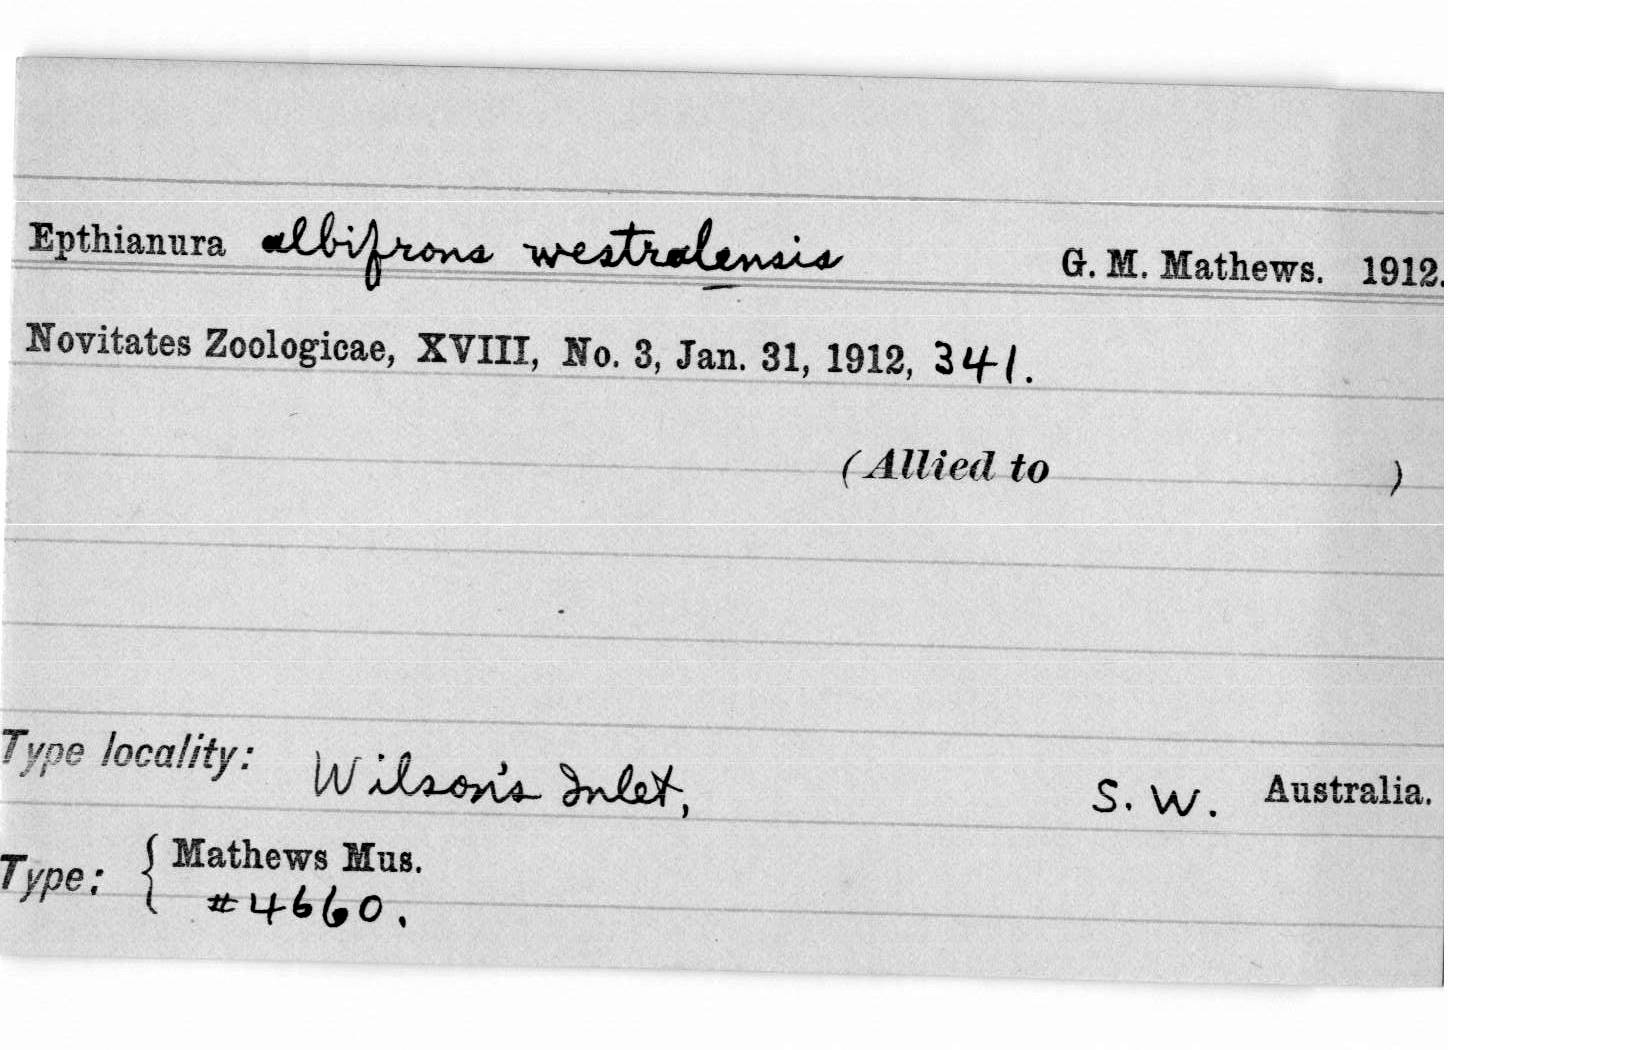 Epthianura albifrons westralensis G. M. Mathews. 1912.
Novitates Zoologicae, XVIII, No. 3, Jan. 31, 1912, 341.
(Allied to )
Type locality: Wilson's Inlet, S. W. Australia.
Type: { Mathews Mus.
#4660.